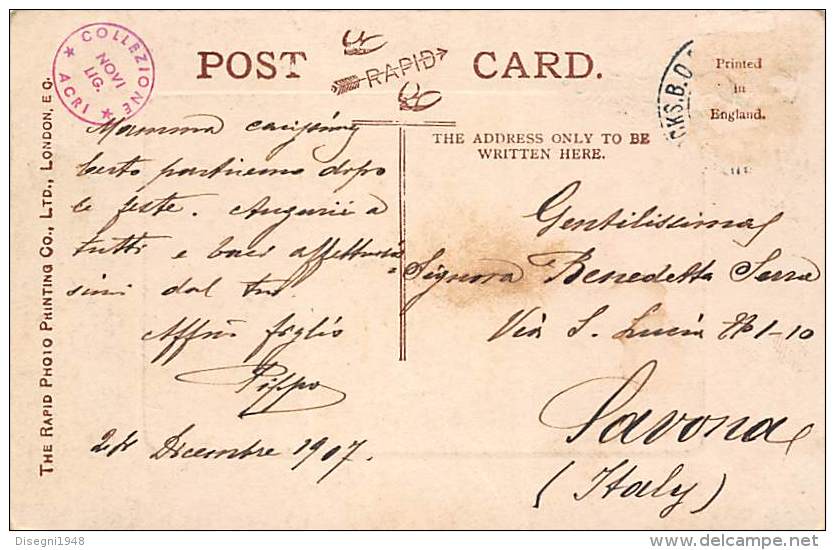 COLLEZIONE
NOVI
LIG.
ACRI
POST CARD.
RAPID
Printed
in
England.
RKS.B.O
THE ADDRESS ONLY TO BE
WRITTEN HERE.
THE RAPID PHOTO PRINTING CO., LTD., LONDON, E.C.
Mamma carissima
certo partiremo dopo
le feste. Auguri a
tutti e baci affettuosis=
simi dal tuo
Affmo figlio
Pippo
24 Dicembre 1907.
Gentilissima
Signora Benedetta Serra
Via S. Lucia 1-10
Savona
(Italy)
Disegni1948
www.delcampe.net